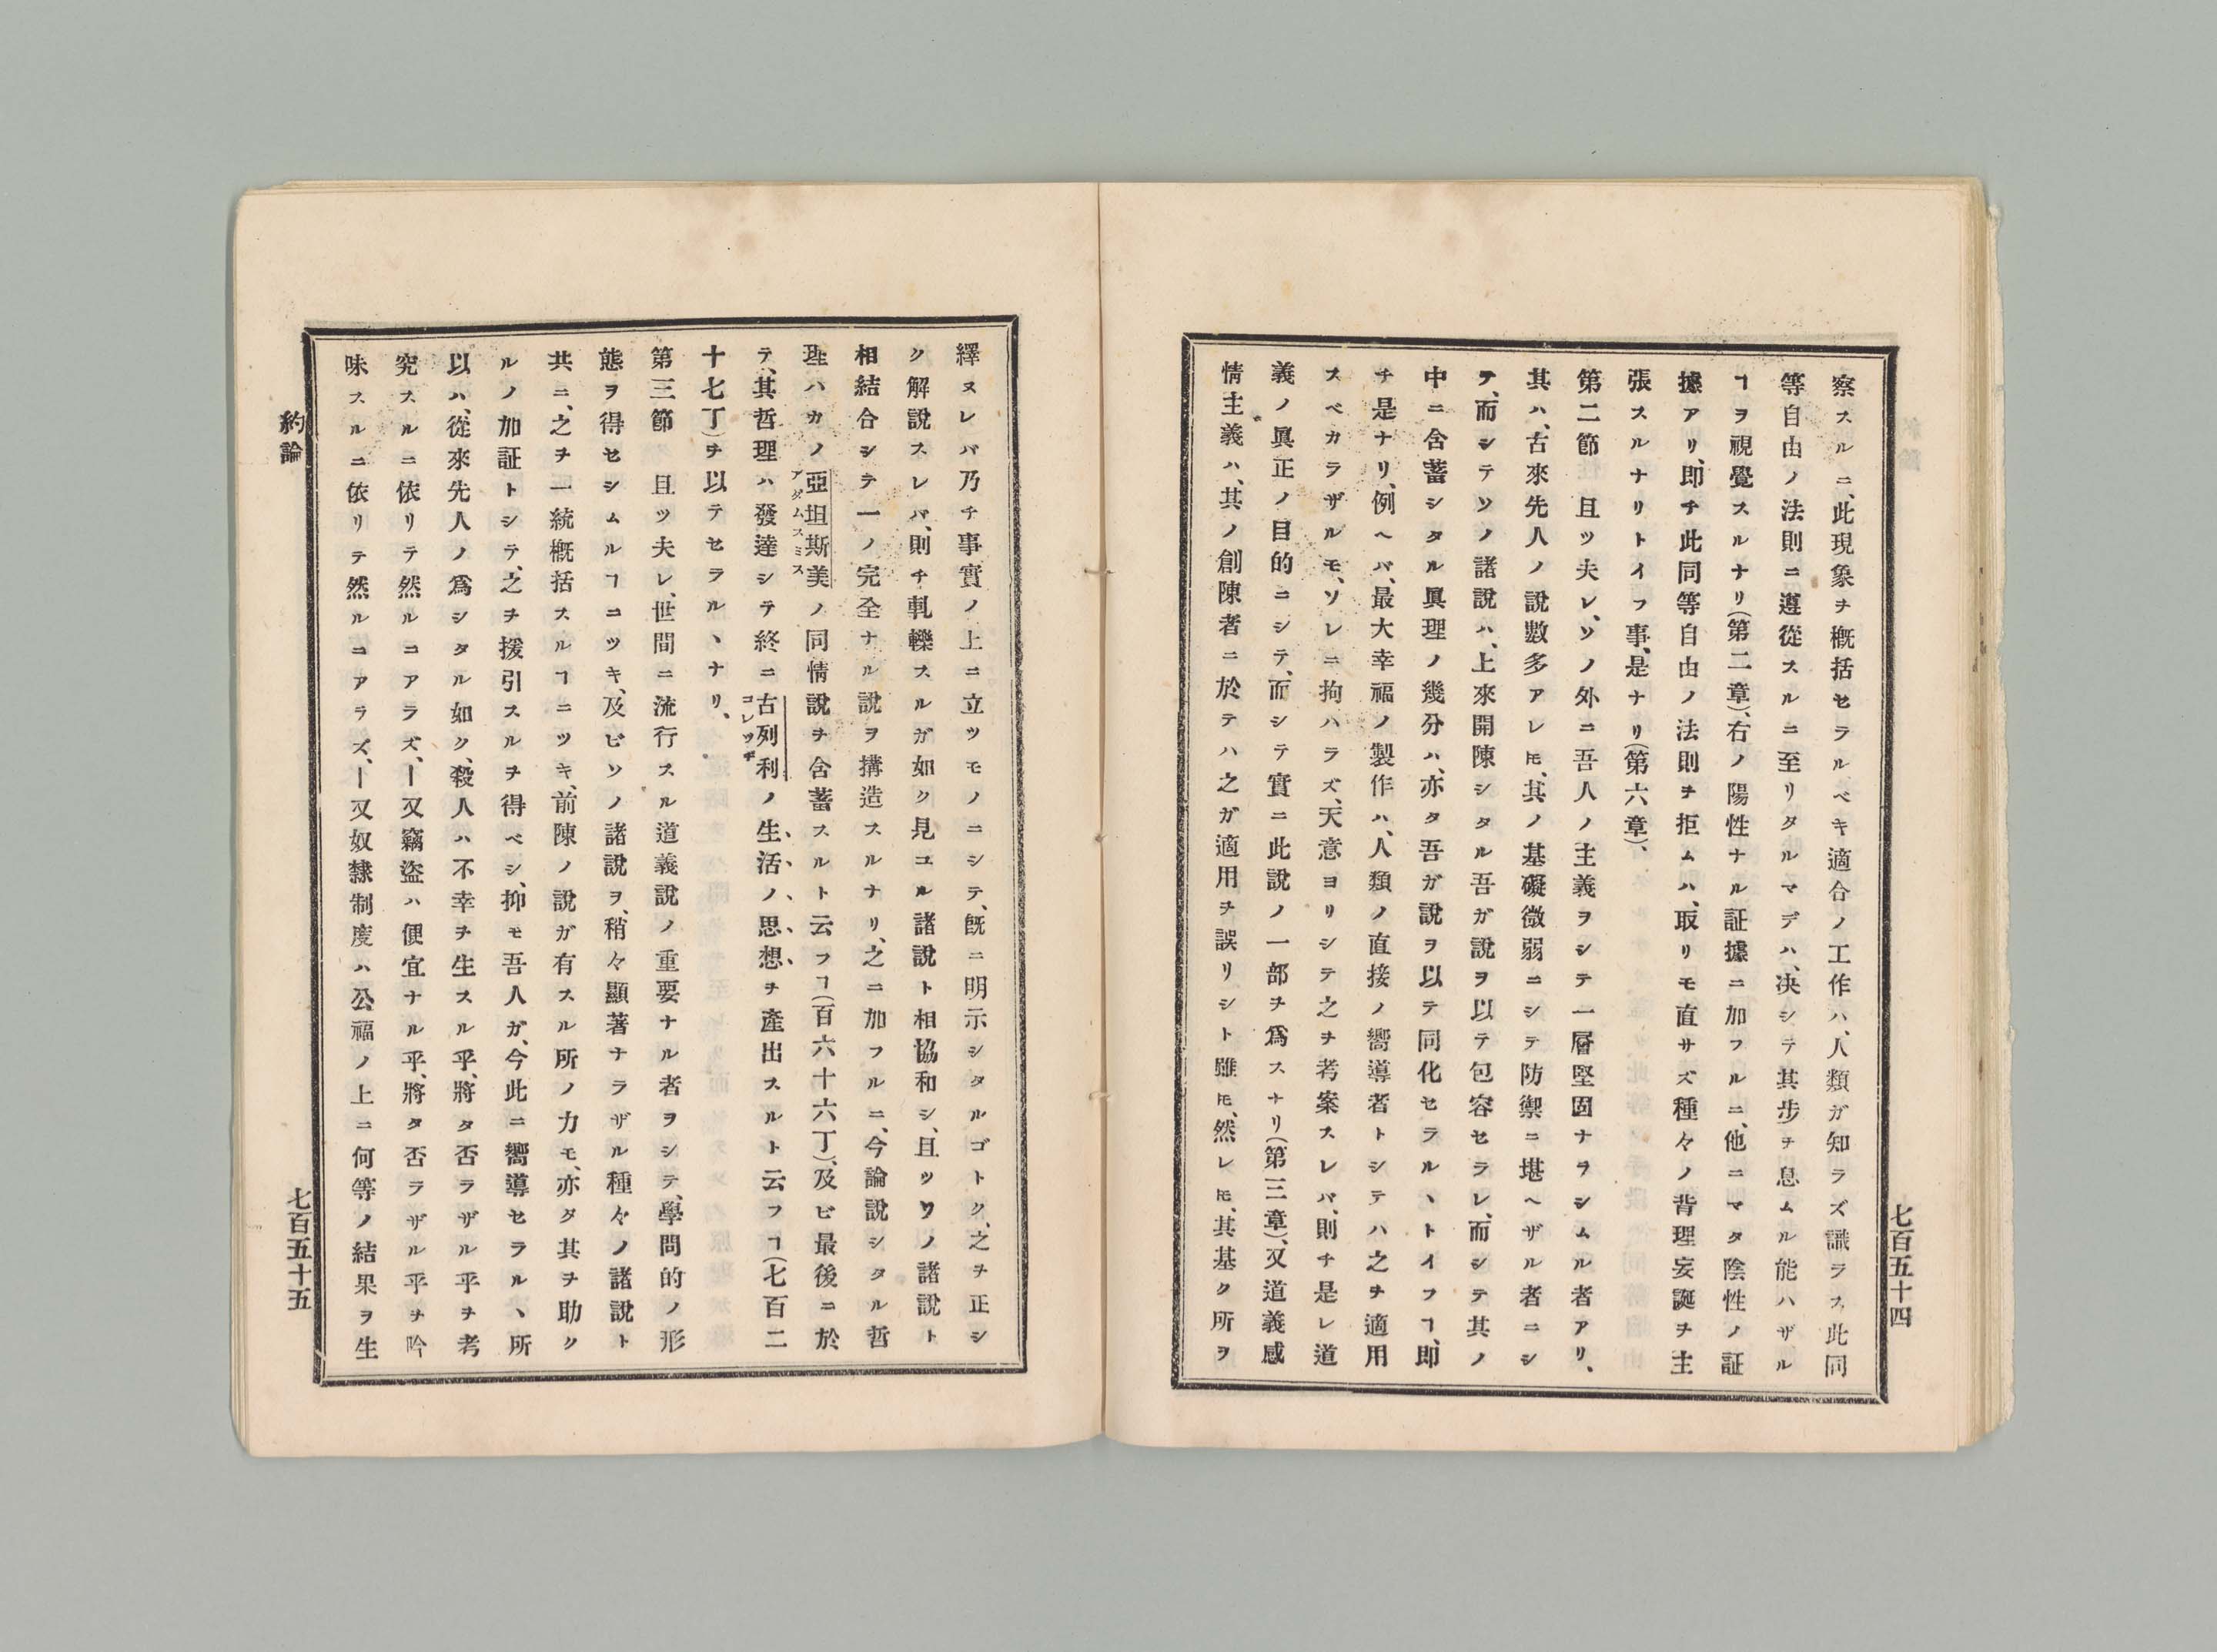 察スルニ、此現象ヲ槪括セラルベキ適合ノ工作ハ、人類ガ知ラズ識ラス此同
等自由ノ法則ニ遵從スルニ至リタルマデハ、决シテ其步ヲ息ムル能ハザル
ヿヲ視覺スルナリ(第二章)、右ノ陽性ナル証據ニ加フルニ、他ニマタ陰性ノ証
據アリ、卽チ此同等自由ノ法則ヲ拒ムハ、取リモ直サズ種々ノ背理妄誕ヲ主
張スルナリトイフ事、是ナリ(第六章)、
第二節 且ツ夫レ、ソノ外ニ吾人ノ主義ヲシテ一層堅固ナラシムル者アリ、
其ハ、古來先人ノ說數多アレ𪜈、其ノ基礎微弱ニシテ防禦ニ堪ヘザル者ニシ
テ、而シテソノ諸說ハ、上來開陳シタル吾ガ說ヲ以テ包容セラレ、而シテ其ノ
中ニ含蓄シタル眞理ノ幾分ハ、亦タ吾ガ說ヲ以テ同化セラルヽトイフヿ、卽
チ是ナリ、例ヘバ、最大幸福ノ製作ハ、人類ノ直接ノ嚮導者トシテハ之ヲ適用
スベカラザルモ、ソレニ拘ハラズ、天意ヨリシテ之ヲ考案スレバ、則チ是レ道
義ノ眞正ノ目的ニシテ、而シテ實ニ此說ノ一部ヲ爲スナリ(第三章)、又道義感
情主義ハ、其ノ創陳者ニ於テハ之ガ適用ヲ誤リシト雖𪜈、然レ𪜈、其基ク所ヲ
七百五十四
繹ヌレバ乃チ事實ノ上ニ立ツモノニシテ、旣ニ明示シタルゴトク、之ヲ正シ
ク解說スレバ、則チ軋轢スルガ如ク見ユル諸說ト相協和シ、且ツソノ諸說ト
相結合シテ一ノ完全ナル說ヲ搆造スルナリ、之ニ加フルニ、今論說シタル哲
理ハカノ亞坦斯美アダムスミスノ同情說ヲ含蓄スルト云フヿ(百六十六丁)、及ビ最後ニ於
テ、其哲理ハ發達シテ終ニ古列利コレリツヂノ生活ノ思想ヲ產出スルト云フヿ(七百二
十七丁)ヲ以テセラルヽナリ、
第三節 且ツ夫レ、世間ニ流行スル道義說ノ重要ナル者ヲシテ、學問的ノ形
態ヲ得セシムルヿニツキ、及ビソノ諸說ヲ、稍々顯著ナラザル種々ノ諸說ト
共ニ、之ヲ一統槪括スルヿニツキ、前陳ノ說ガ有スル所ノ力モ、亦タ其ヲ助ク
ルノ加証トシテ、之ヲ援引スルヲ得ベシ、抑モ吾人ガ、今此ニ嚮導セラルヽ所
以ハ、從來先人ノ爲シタル如ク、殺人ハ不幸ヲ生スル乎、將タ否ラザル乎ヲ考
究スルニ依リテ然ルニアラズ、―又竊盜ハ便宜ナル乎、將タ否ラザル乎ヲ吟
味スルニ依リテ然ルニアラズ、―又奴隸制度ハ公福ノ上ニ何等ノ結果ヲ生
約論
七百五十五